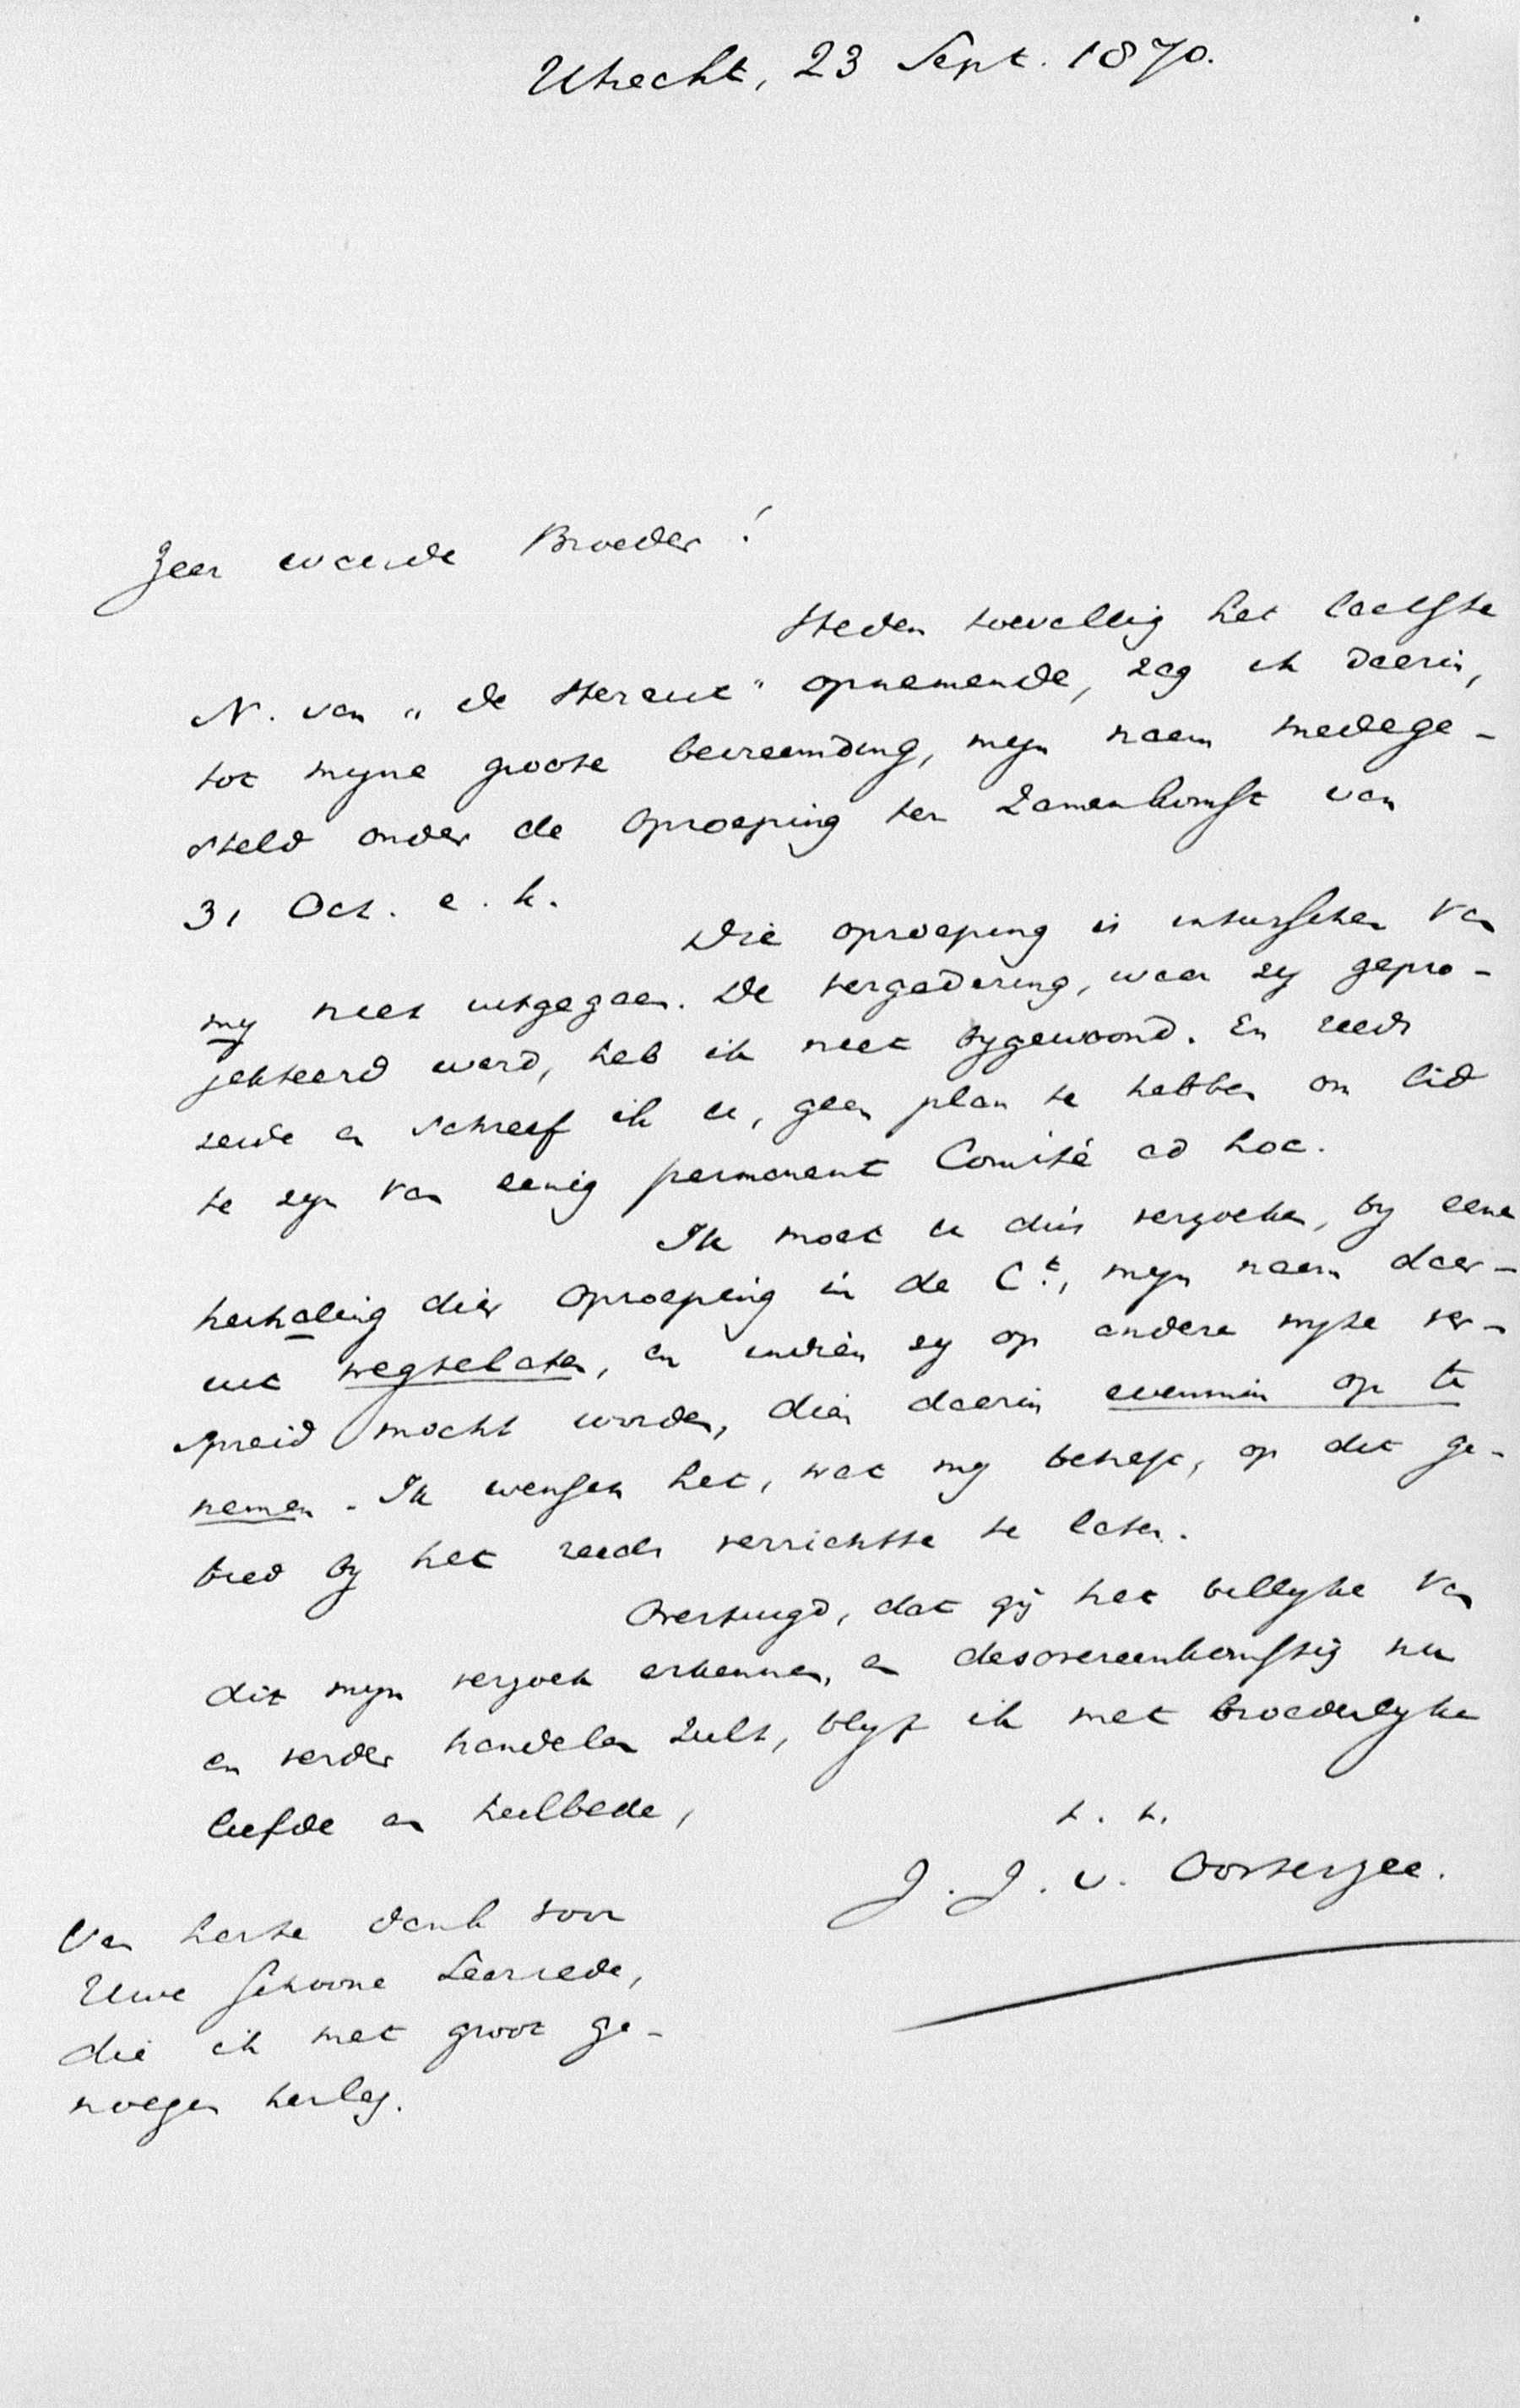 Utrecht, 23 Sept. 1870.
Zeer waarde Broeder!
Heden toevallig het laatste
N. van "de Heraut" opnemende, zag ik daarin,
tot myne groote bevreemding, myn naam medege-
steld onder de oproeping ter zamenkomst van
31 Oct. e. k.
Die oproeping is intusschen van
my niet uitgegaan. De vergadering, waar zy gepro-
jekteerd werd, heb ik niet bygewoond. En reeds
zeide en schreef ik u, geen plan te hebben om lid
te zyn van eenig permanent Comité ad hoc.
Ik moet u dus verzoeken, by eene
herhaling dier oproeping in de Ct., myn naam daar-
uit wegtelaten, en indien zy op andere wyze ver-
spreid mocht worden, dien daarin evenmin op te
nemen. Ik wensch het, wat my betreft, op dit ge-
bied by het reeds verrichtte te laten.
Overtuigd, dat gij het billyke van
dit myn verzoek erkennen, en desovereenkomstig nu
en verder handelen zult, blyf ik met broederlyke
liefde en heilbede,
t. t.
J. J. v. Oosterzee.
Van harte dank voor
Uwe schoone Leerrede,
die ik met groot ge-
noegen herlas.